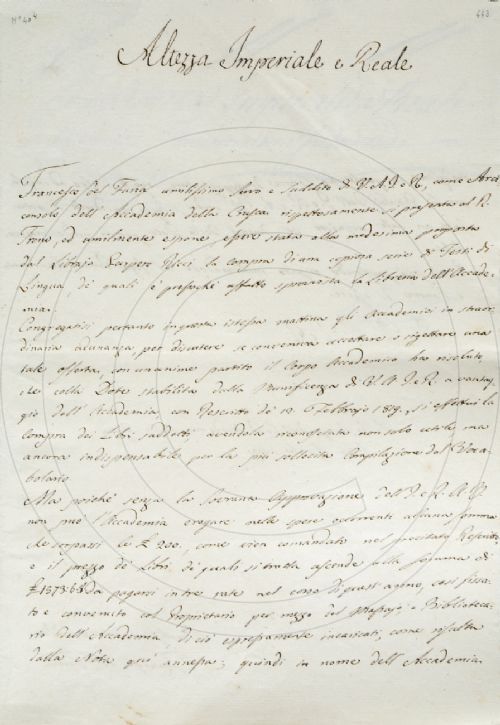 N° 404
443
Altezza Imperiale e Reale
Francesco Del Furia umilissimo servo e suddito di V. A. I. e R., come Arci-
console dell'Accademia della Crusca rispettosamente si presenta al R.
Trono, ed umilmente espone essere stata alla medesima proposta
dal Librajo Gaspero Ricci la compra di una copiosa serie di Testi di
Lingua, de' quali è presochè affatto sprovvista la Libreria dell'Accade-
mia.
Congregatisi pertanto in questa istessa mattina gli Accademici in straor-
dinaria adunanza, per discutere se conveniva accettare o rigettare una
tale offerta, con unanime partito il Corpo Accademico ha risoluto,
che colla Dote stabilita dalla Munificenza di V. A. I. e R. a vantag-
gio dell'Accademia con Rescritto de' 12. Febbrajo 1819, si effettui la
compra dei Libri suddetti, avendola riconosciuta non solo utile, ma
ancora indispensabile per la più sollecita Compilazione del Voca-
bolario.
Ma poichè senza la Sovrana Approvazione dell'I. e R. A. V.
non può l'Accademia erogare nelle spese occorrenti alcuna somma
che sorpassi le £ 200, come vien comandato nel precitato Rescritto,
e il prezzo de' Libri, de' quali si tratta ascende alla somma di
da pagarsi in tre rate nel corso di quest'anno, così fissa-
to e convenuto col Proprietario per mezzo del Massajo e Biblioteca-
rio dell'Accademia di ciò espressamente incaricati, come risulta
dalla Nota qui annessa; quindi in nome dell'Accademia